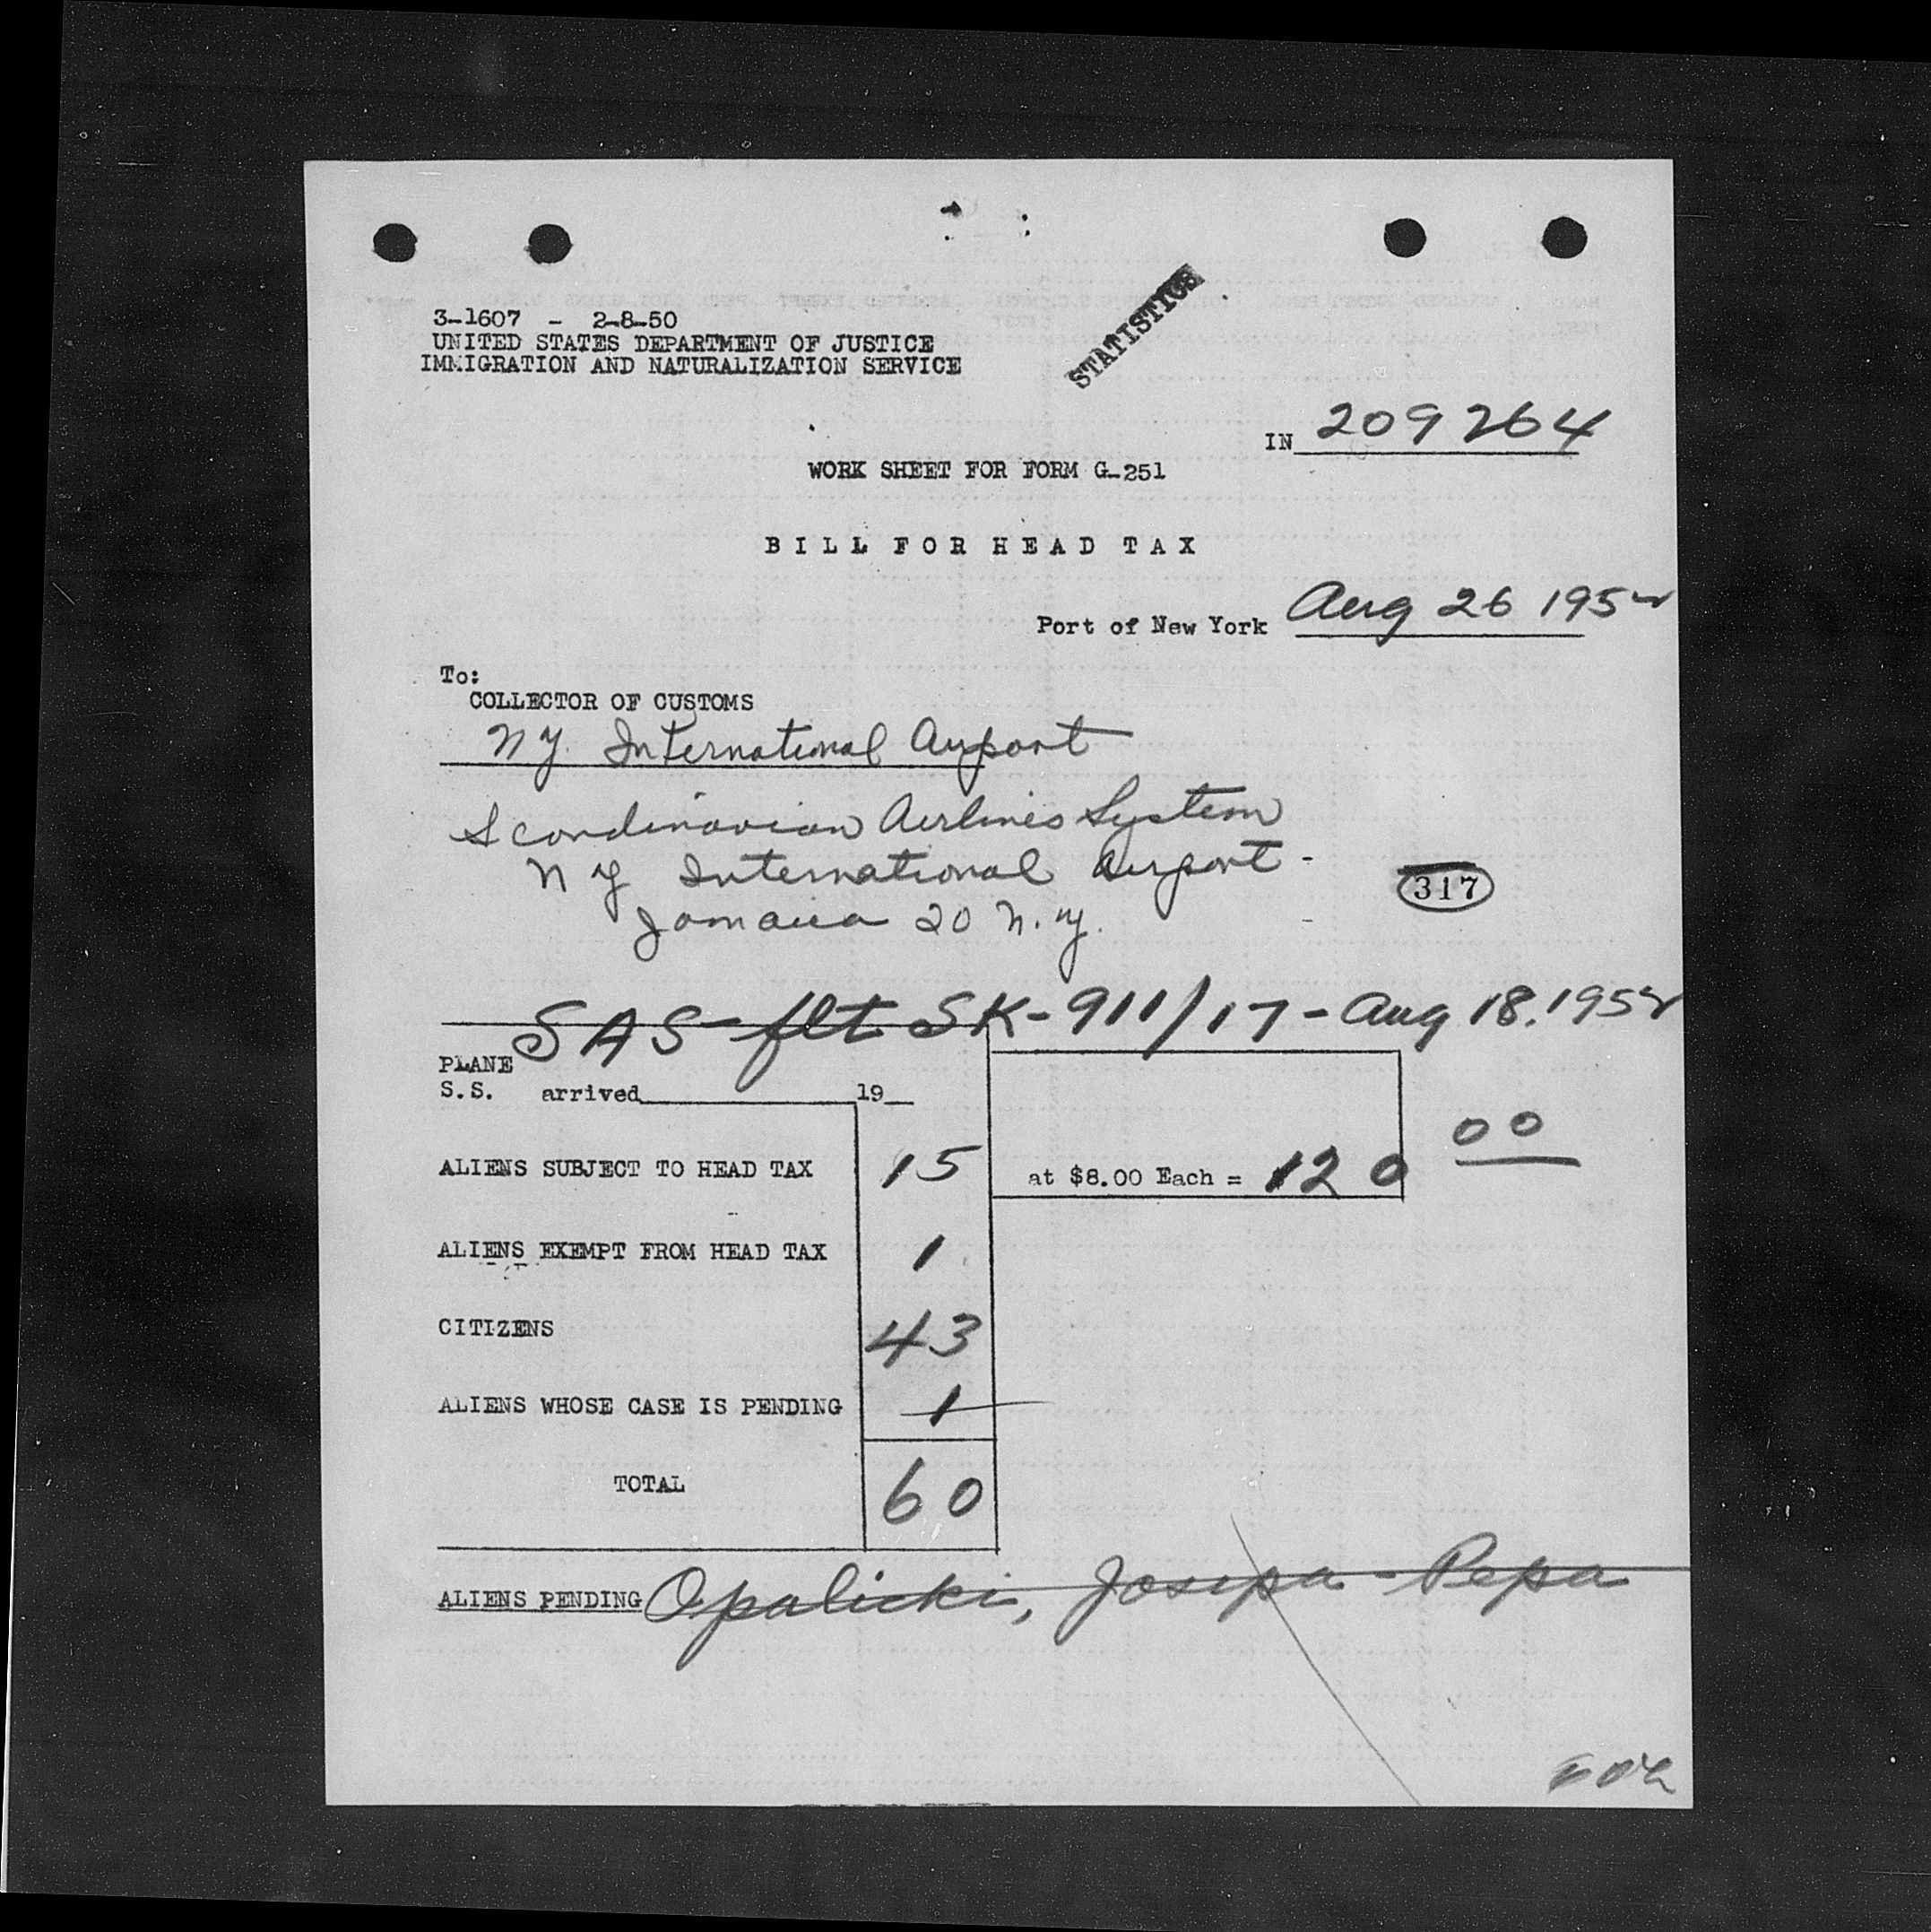 3-1607 - 2-8-50
UNITED STATES DEPARTMENT OF JUSTICE
IMMIGRATION AND NATURALIZATION SERVICE
STATISTICS
IN 209264
WORK SHEET FOR FORM G-251
BILL FOR HEAD TAX
Port of New York Aug 26 1952
To:
COLLECTOR OF CUSTOMS
NY. International Airport
Scandinavian Airlines System
NY International Airport -
Jamaica 20 N.Y.
317
SAS-flt SK-911/17-Aug 18.1952
PLANE
S.S. arrived 19
ALIENS SUBJECT TO HEAD TAX 15 at $8.00 Each = 120 00
ALIENS EXEMPT FROM HEAD TAX 1
CITIZENS 43
ALIENS WHOSE CASE IS PENDING 1
TOTAL 60
ALIENS PENDING Opalicki, Josipa - Pepa